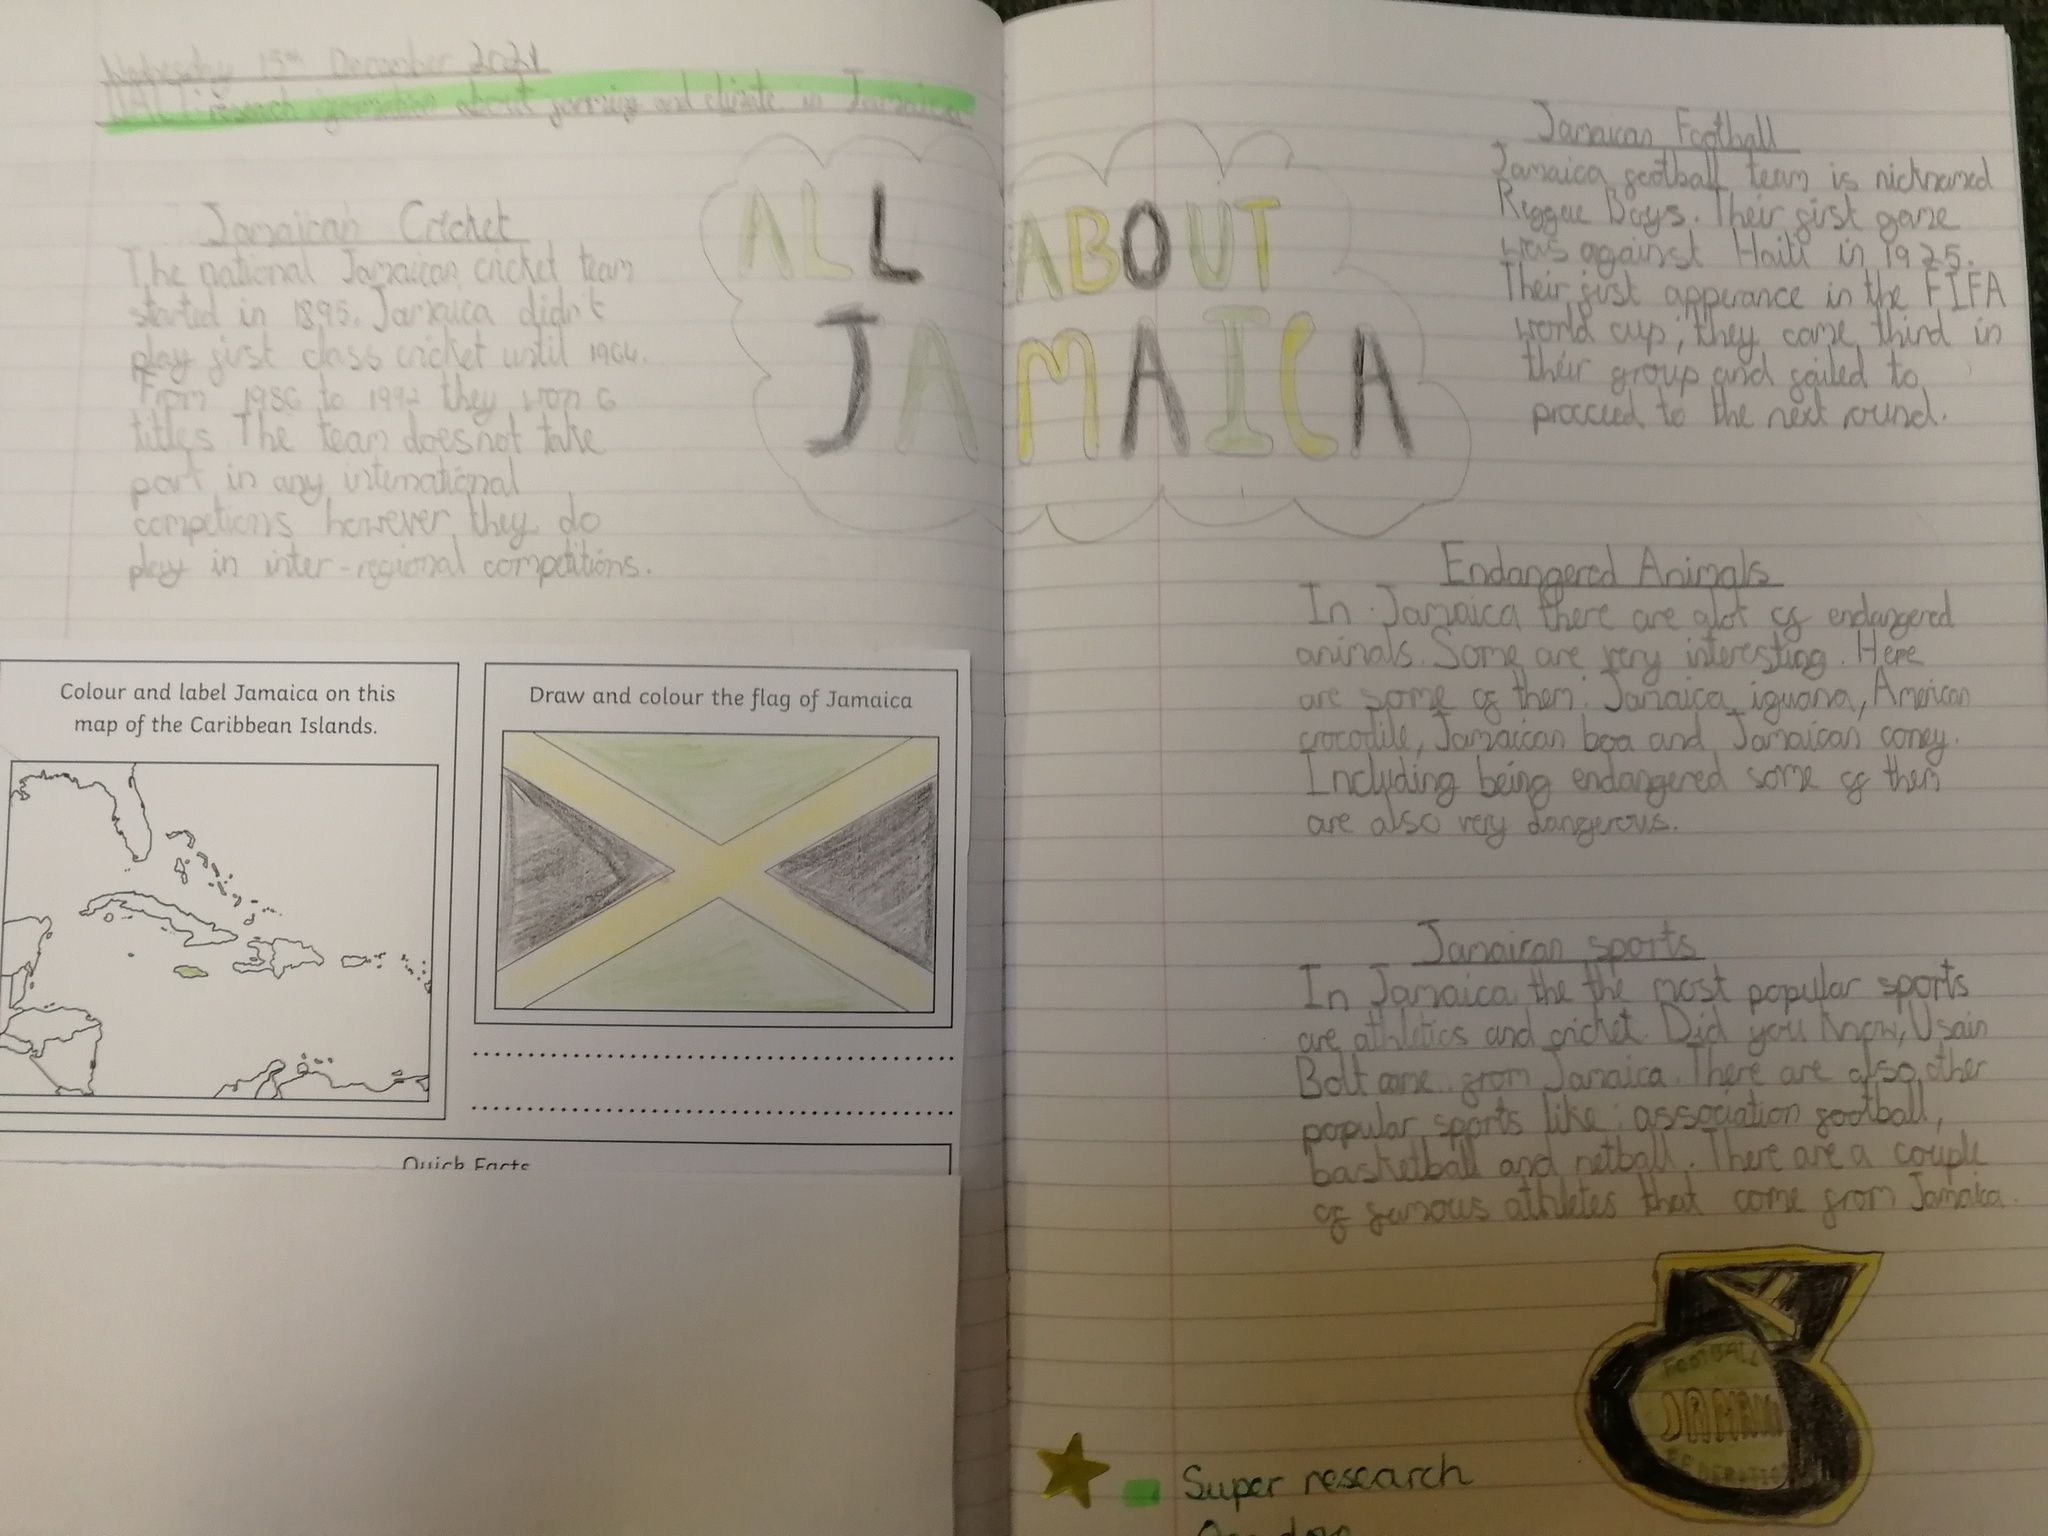 Wednesday 15th December 2021
WALT: research information about farming and climate in Jamaica
ALL ABOUT
JAMAICA
Jamaican Cricket
The national Jamaican cricket team
started in 1895. Jamaica didn't
play first class cricket until 1964.
From 1986 to 1992 they won 6
titles. The team does not take
part in any international
competions however they do
play in inter-regional competitions.
Colour and label Jamaica on this
map of the Caribbean Islands.
Draw and colour the flag of Jamaica
Quick Facts
Jamaican Football
Jamaica football team is nicknamed
Reggae Boys. Their first game
was against Haiti in 1925.
Their first apperance in the FIFA
world cup, they came third in
their group and failed to
proceed to the next round.
Endangered Animals
In Jamaica there are alot of endangered
animals. Some are very interesting. Here
are some of them: Jamaica iguana, American
crocodile, Jamaican boa and Jamaican coney.
Including being endangered some of them
are also very dangerous.
Jamaican sports
In Jamaica the the most popular sports
are athletics and cricket. Did you know, Usain
Bolt came from Jamaica. There are also other
popular sports like: association football,
basketball and netball. There are a couple
of famous athletes that come from Jamaica.
FOOTBALL
JAMAICA
FEDERATION
Super research